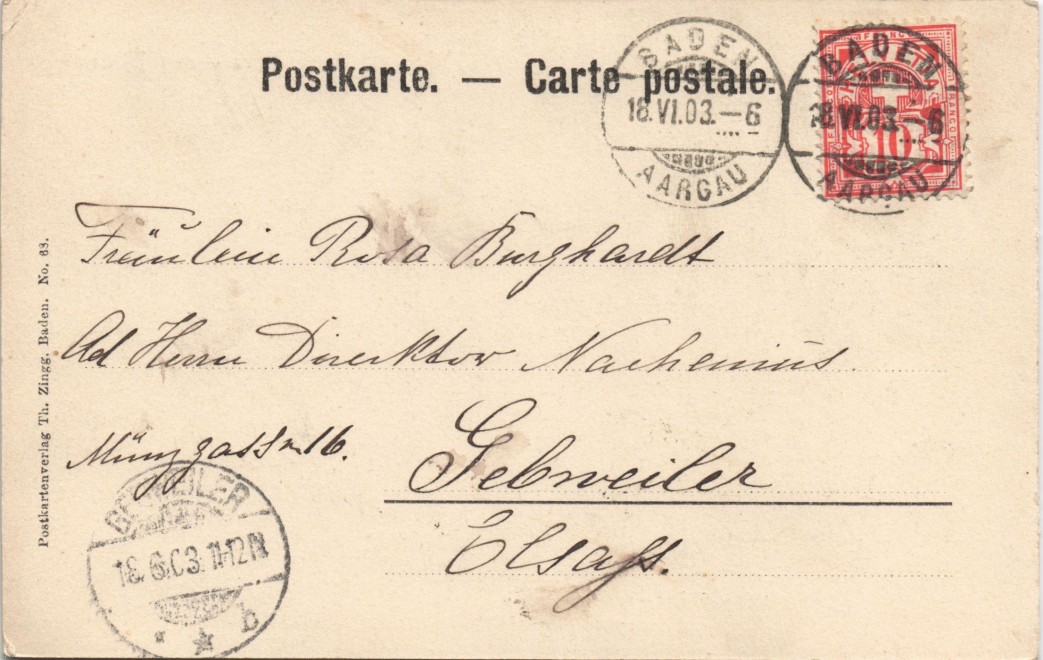 Postkarte. — Carte postale.
BADEN
18.VI.03.–6
AARGAU
BADEN
18.VI.03.–6
AARGAU
FRANCO
10
Fräulein Rosa Burghardt
Ad Herrn Direktor Nachenius
Münzgasse 16.
Gebweiler
Elsass.
GEBWEILER
18.6.03.11-12N
b
Postkartenverlag Th. Zingg, Baden. No. 63.